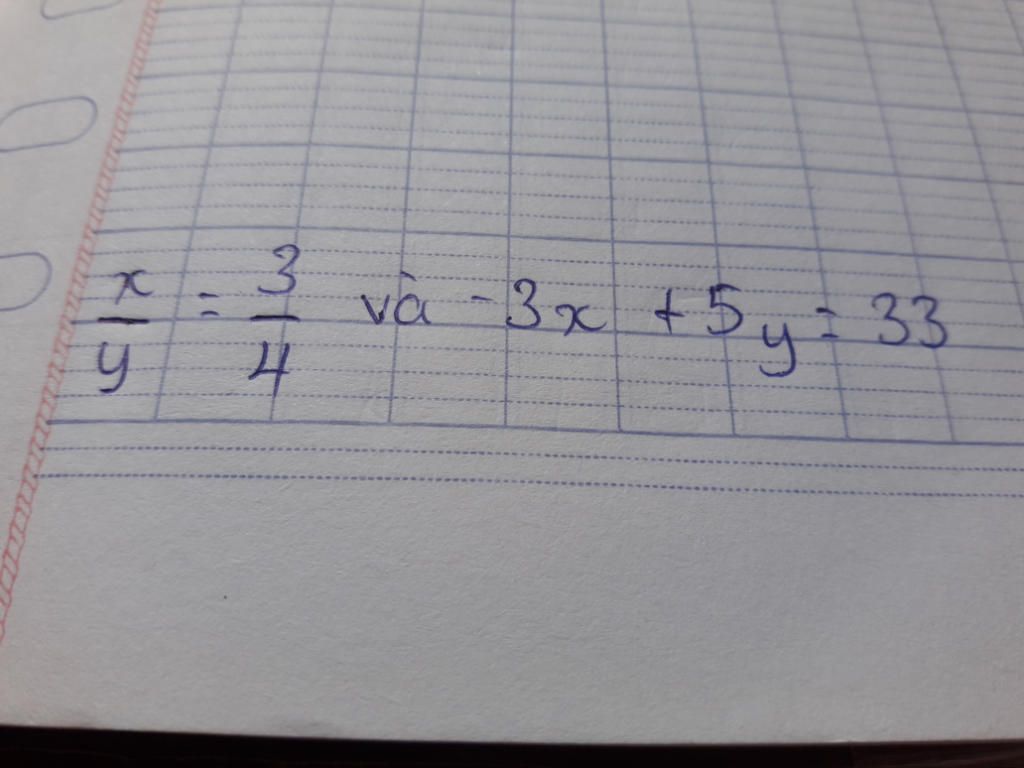 x/y = 3/4 và -3x + 5y = 33